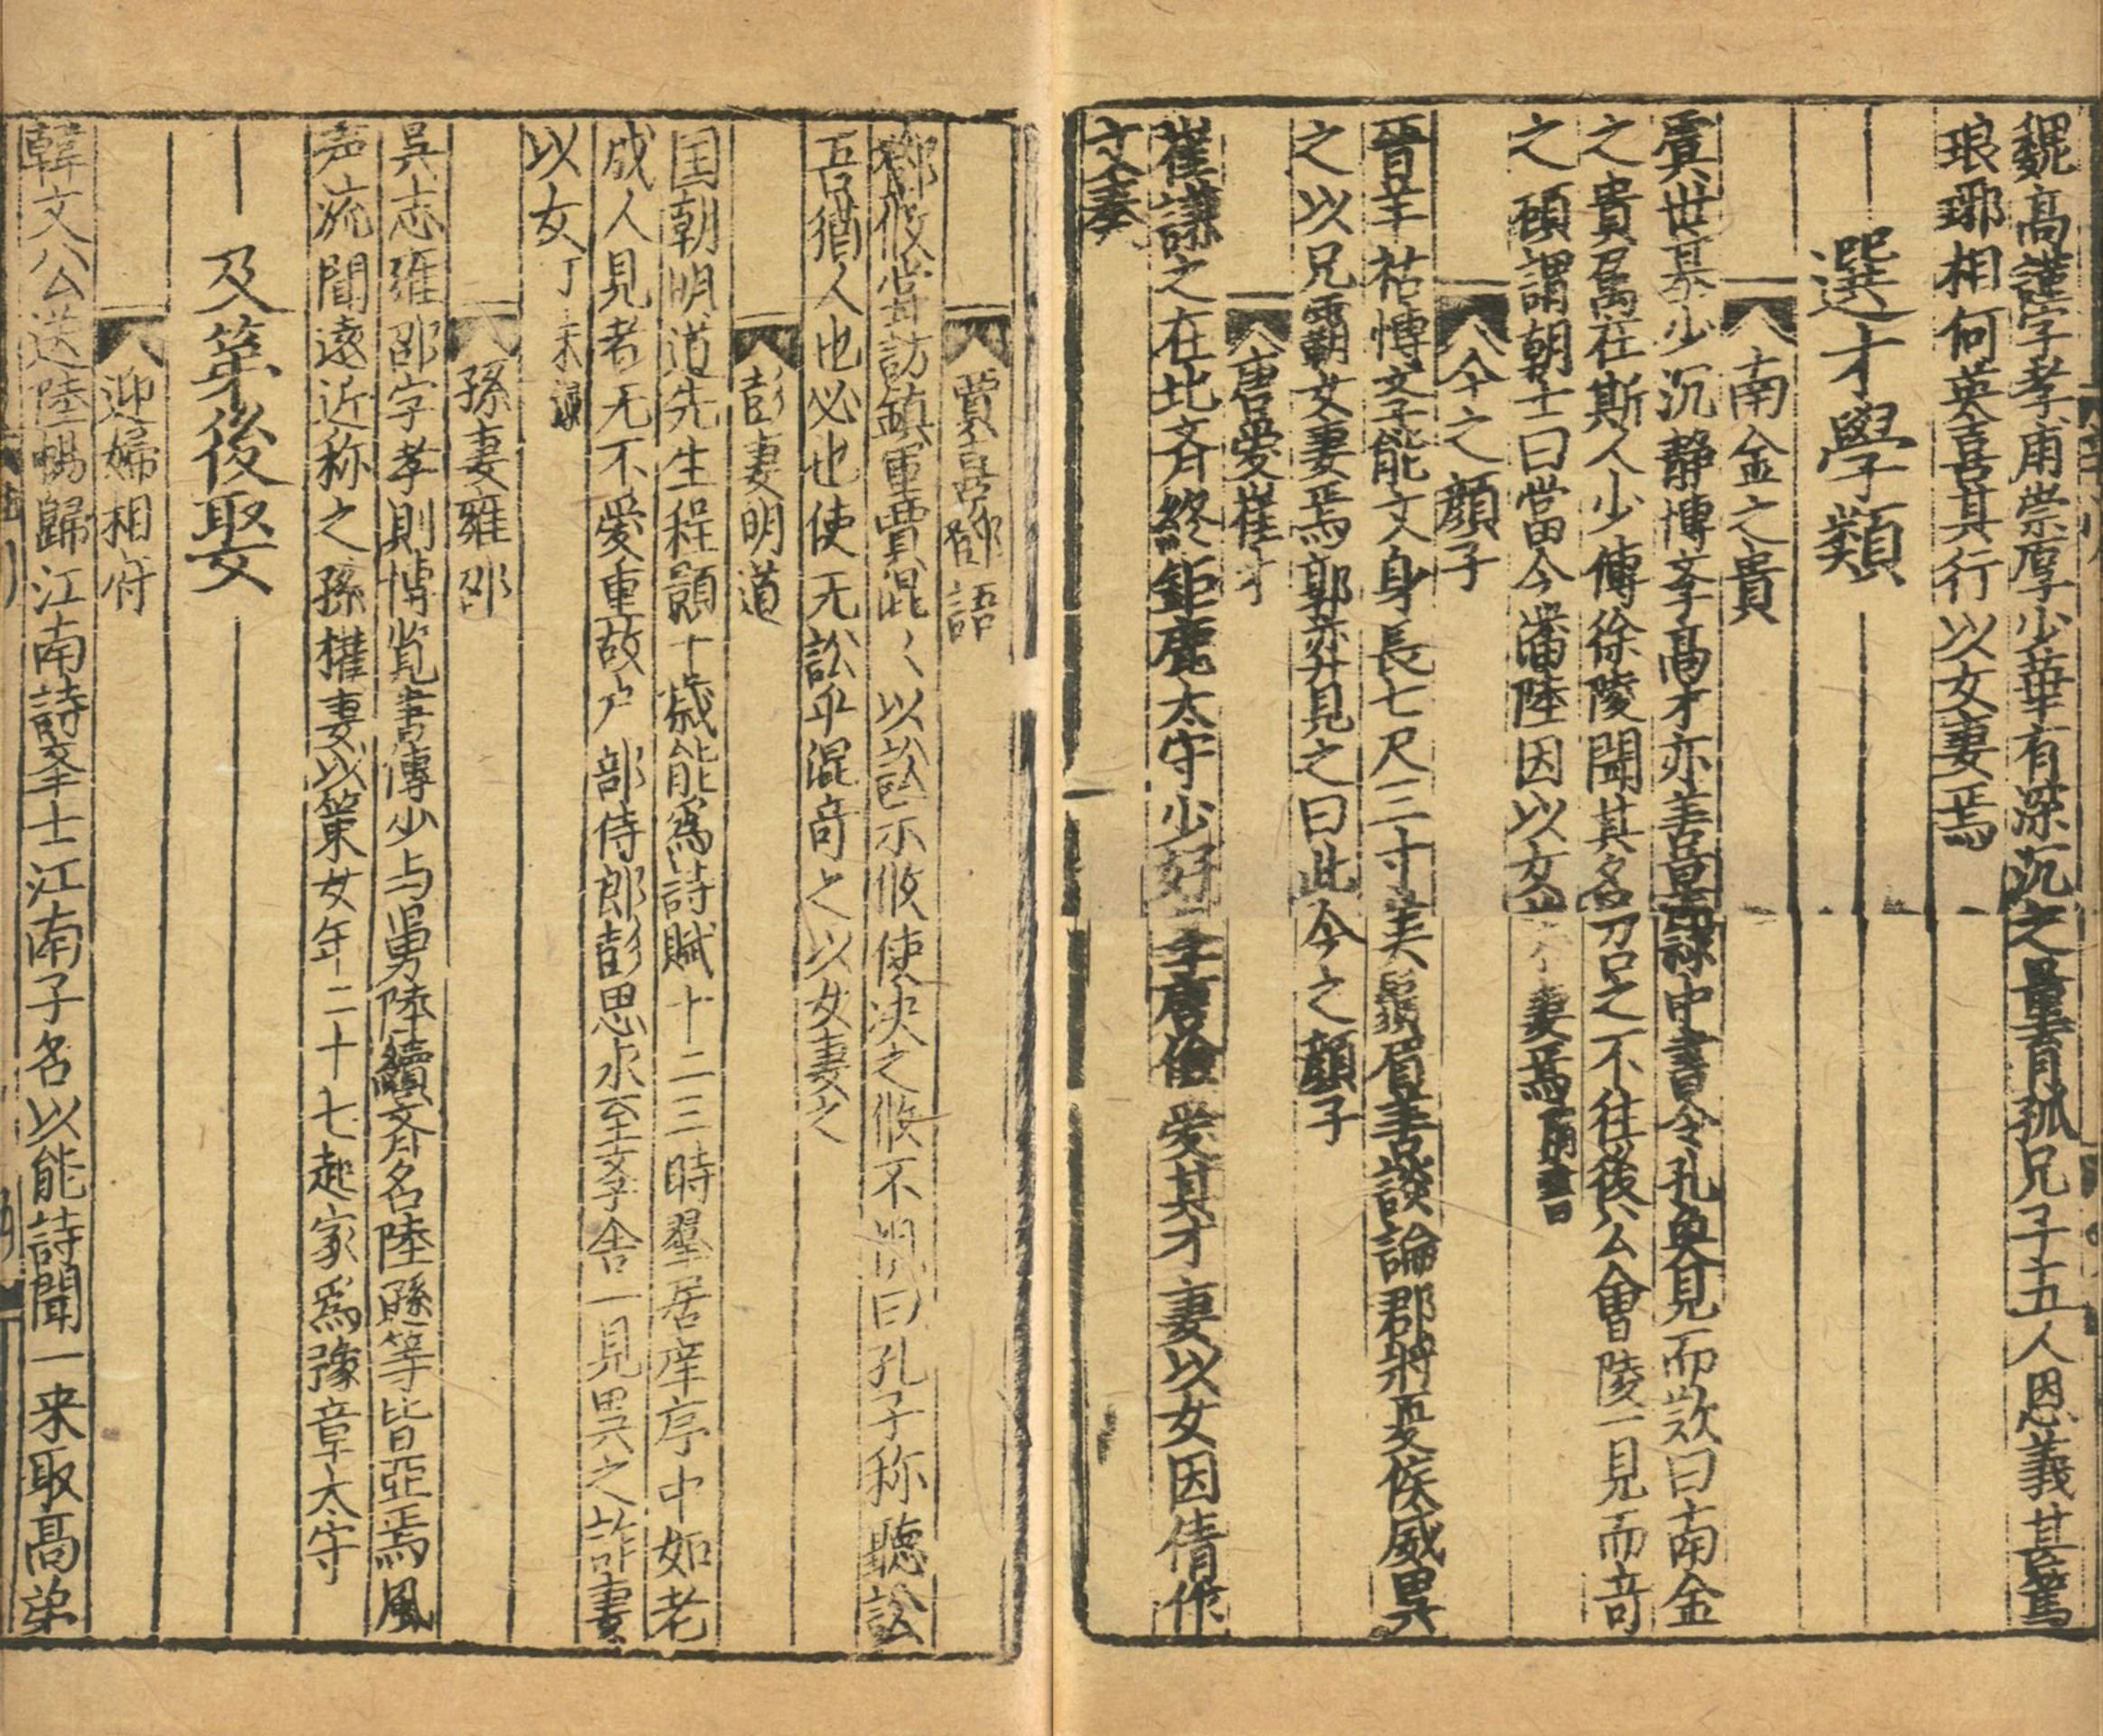 魏高謹字孝甫崇厚少華有深沉之量青孤兄子五人恩義甚篤
琅琊相何英喜其行以女妻焉
選才學類
南金之貴
虞世基少沉静博孝高才亦善草隸中書令孔奐見而歎曰南金
之貴屬在斯人少傅徐陵聞其名召之不往後公會陵一見而竒
之顧謂朝士曰當今潘陸因以女妻焉
今之顔子
晉羊祜愽孝能文身長七尺三寸美鬚眉善談論郡將夏侯威異
之以兄霸女妻焉郭奕見之曰此今之顔子
唐愛崔才
崔謙之在北齐終鉅鹿太守少好孝唐儉愛其才妻以女因倩作
文奏
賈喜鄒語
鄒攸甞訪鎮軍賈混〻以訟示攸使决之攸不曰孔子称聽訟
吾猶人也必也使无訟乎混竒之以女妻之
彭妻明道
国朝明道先生程顥十歲能爲詩賦十二三時羣居庠序中如老
成人見者无不愛重故户部侍郎彭思永至孝舍一見異之許妻
以女
孫妻雍邵
吳志雍邵字孝則博覧書傳少与舅陸績齐名陸遜等皆亞焉風
声流聞遠近称之孫權妻以策女年二十七起家爲豫章太守
及第後娶
迎婦相府
韓文公送陸暢歸江南詩孝士江南子名以能詩聞一来取高第